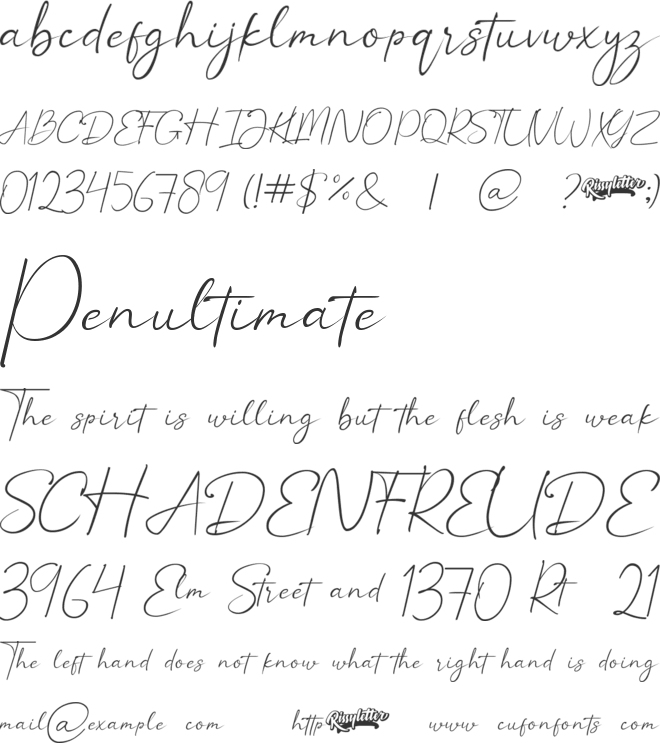 abcdefghijklmnopqrstuvwxyz
ABCDEFGHIJKLMNOPQRSTUVWXYZ
0123456789 (!#$%& | @ ?Risyletter;)
Penultimate
The spirit is willing but the flesh is weak
SCHADENFREUDE
3964 Elm Street and 1370 Rt 21
The left hand does not know what the right hand is doing
mail@example com http Risyletter www cufonfonts com